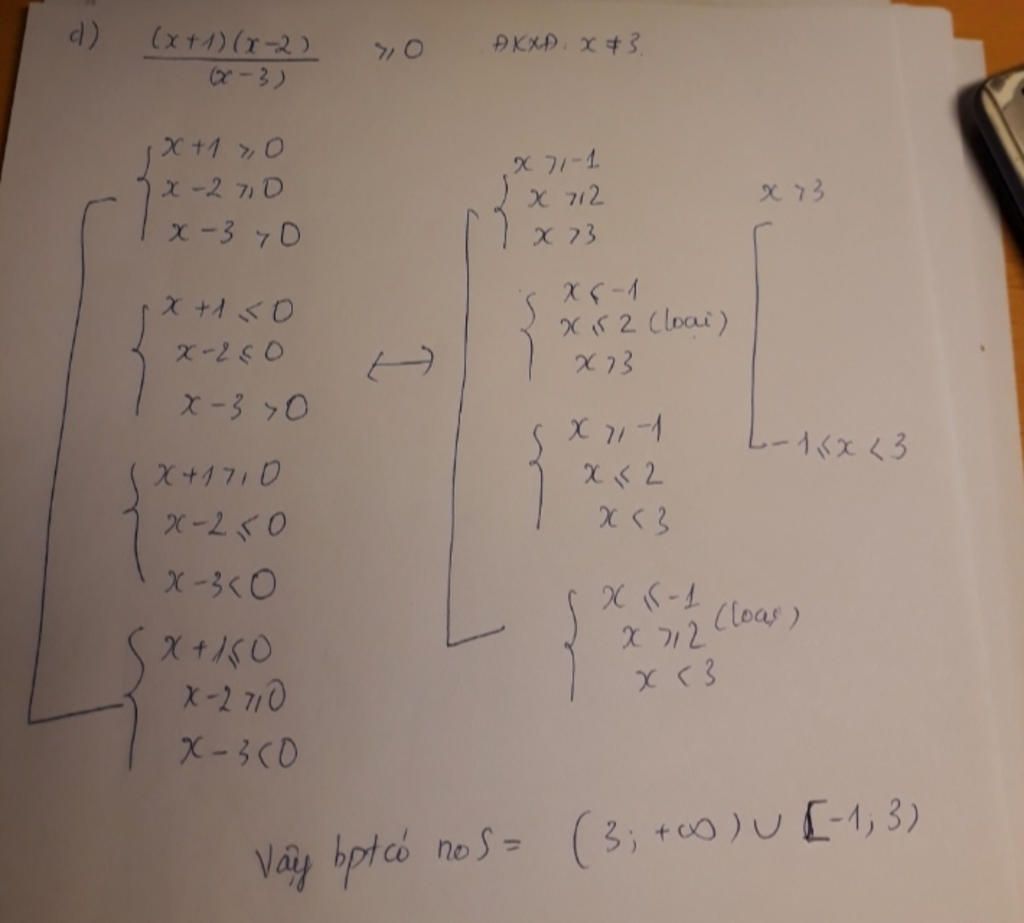 d) (x+1)(x-2) / (x-3) ⩾ 0 ĐKXĐ: x ≠ 3.
{ x+1 ⩾ 0
x-2 ⩾ 0
x-3 > 0
{ x+1 ⩽ 0
x-2 ⩽ 0
x-3 > 0
{ x+1 ⩾ 0
x-2 ⩽ 0
x-3 < 0
{ x+1 ⩽ 0
x-2 ⩾ 0
x-3 < 0
↔
{ x ⩾ -1
x ⩾ 2
x > 3
{ x ⩽ -1
x ⩽ 2 (loại)
x > 3
{ x ⩾ -1
x ⩽ 2
x < 3
{ x ⩽ -1
x ⩾ 2 (loại)
x < 3
[ x > 3
-1 ⩽ x < 3
Vậy bpt có no S = (3; +∞) ∪ [-1; 3)